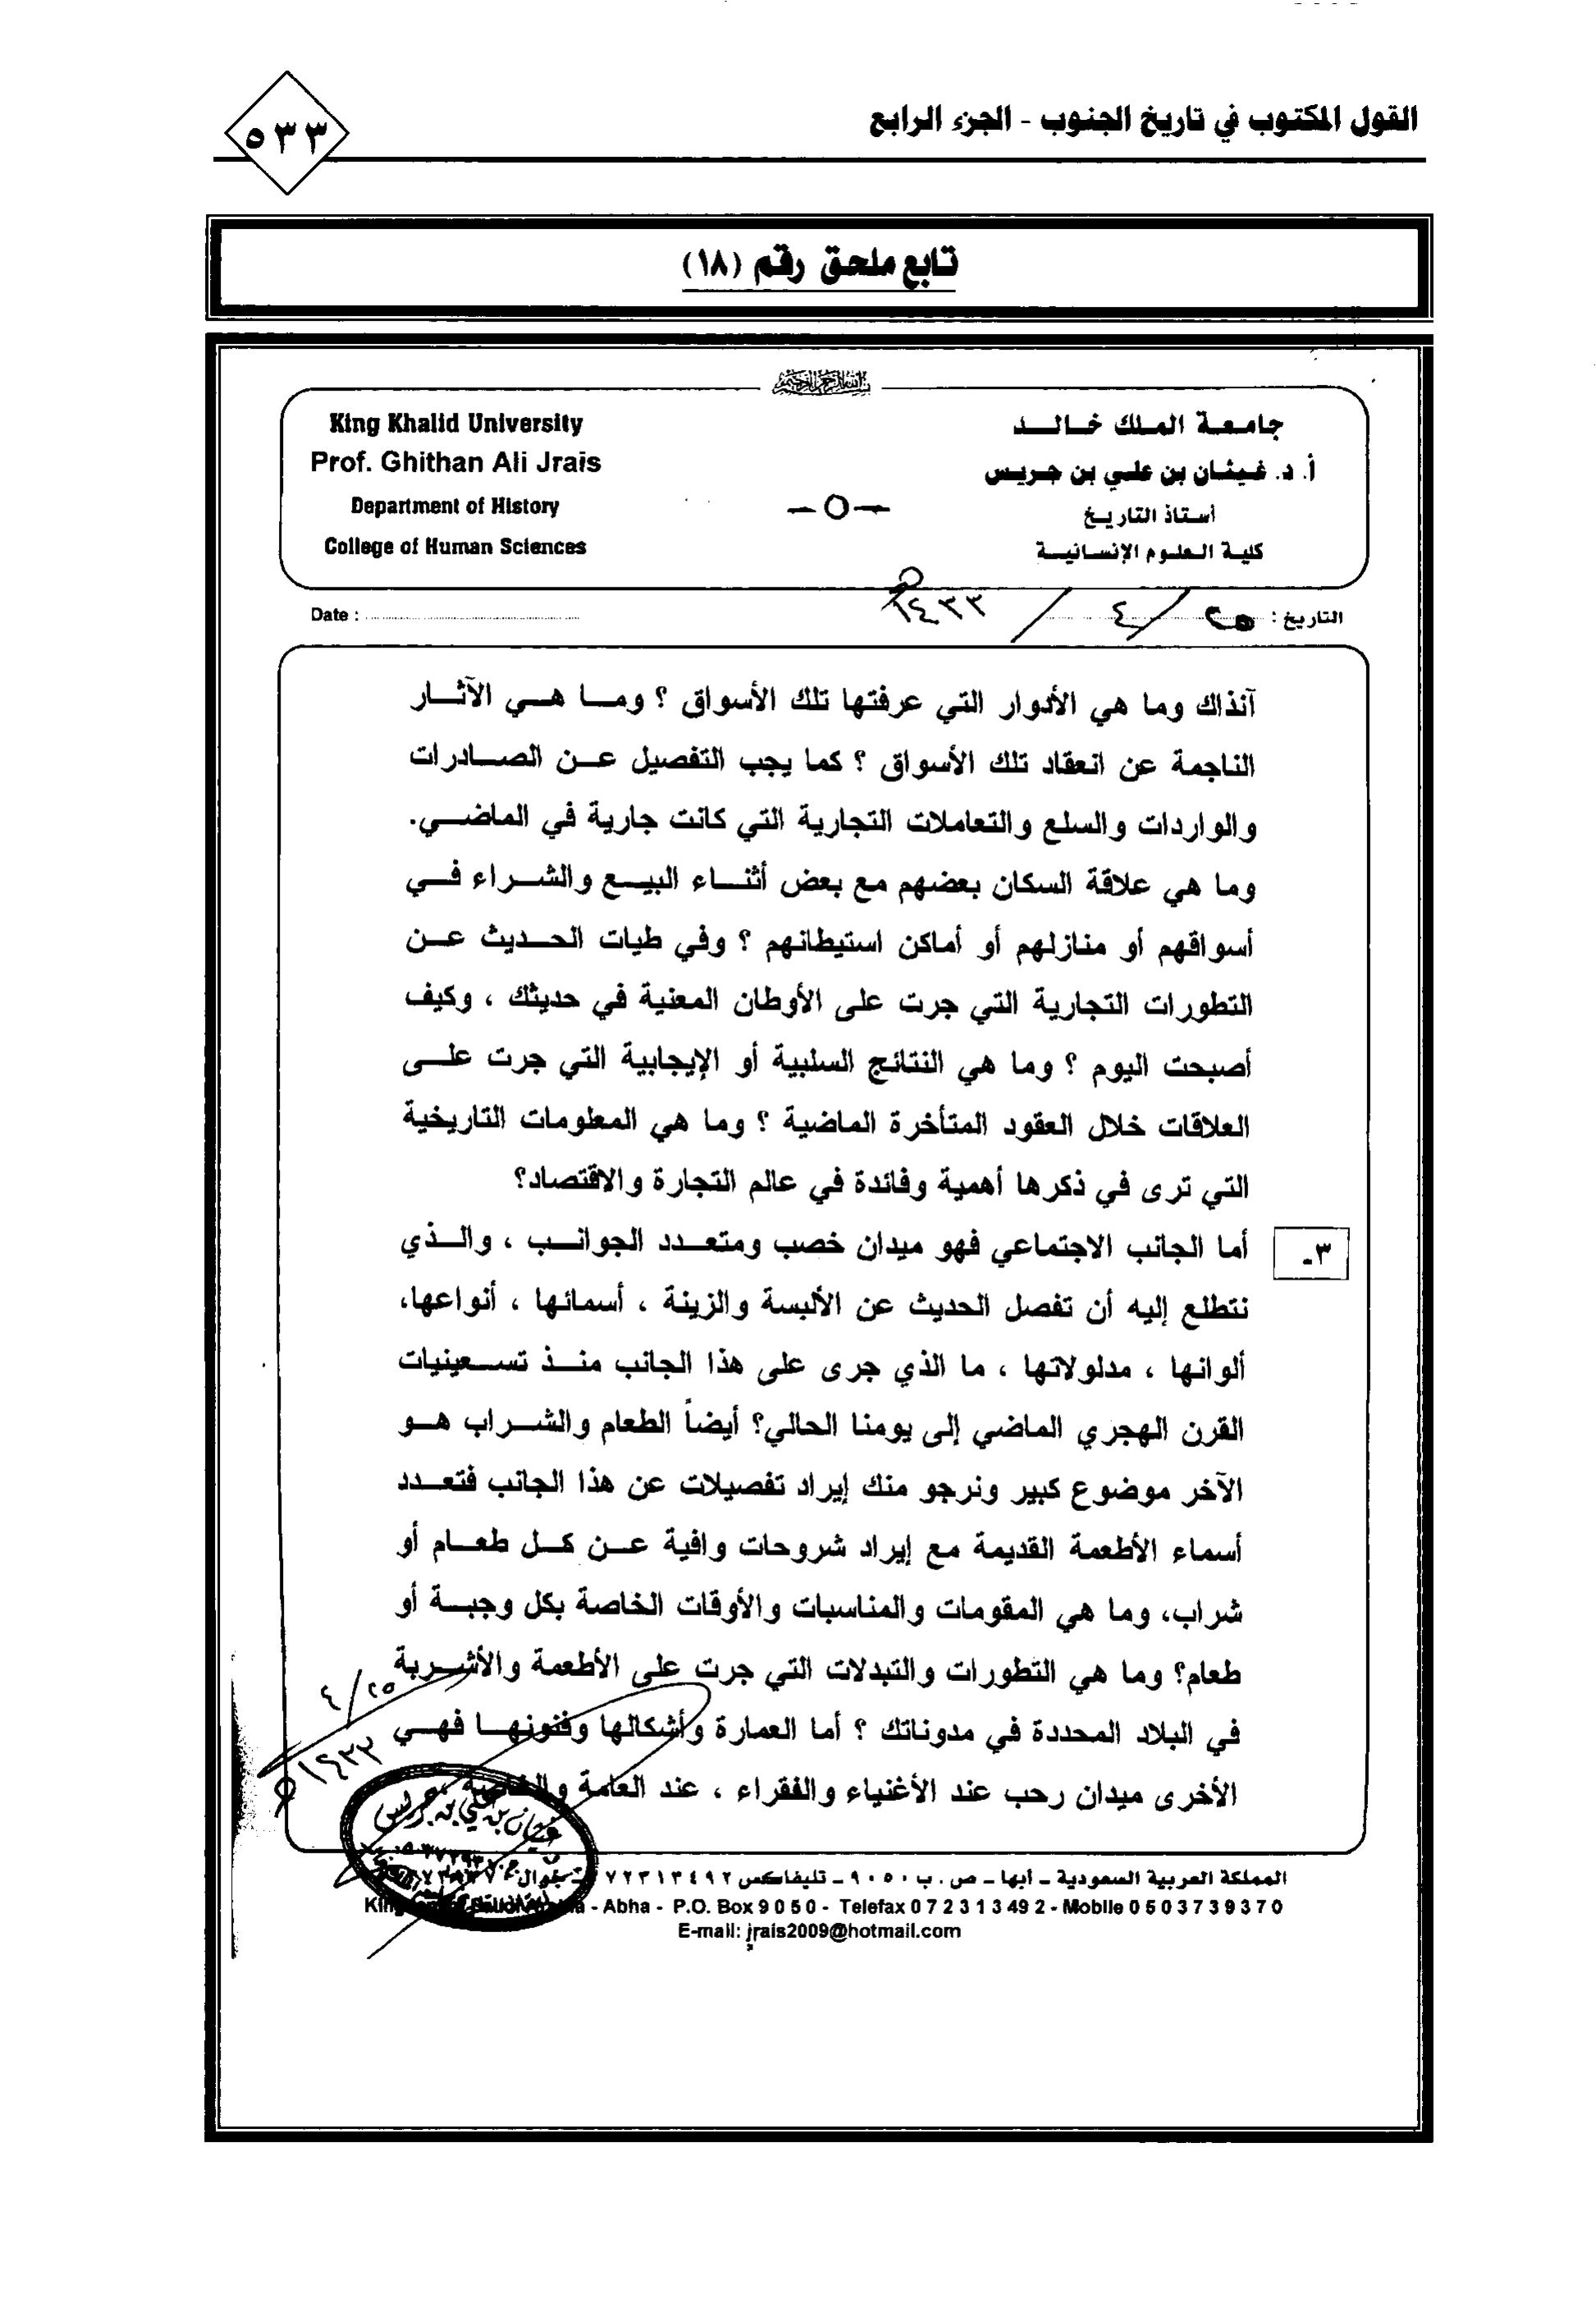 القول المكتوب في تاريخ الجنوب - الجزء الرابع
٥٣٣
تابع ملحق رقم (١٨)
بسم الله الرحمن الرحيم
جامعة الملك خالد
أ. د. غيثان بن علي بن جريس
أستاذ التاريخ
كلية العلوم الإنسانية
King Khalid University
Prof. Ghithan Ali Jrais
Department of History
College of Human Sciences
التاريخ : ٢٥ / ٤ / ١٤٣٣هـ
Date :
آنذاك وما هي الأدوار التي عرفتها تلك الأسواق ؟ وما هي الآثار
الناجمة عن انعقاد تلك الأسواق ؟ كما يجب التفصيل عن الصادرات
والواردات والسلع والتعاملات التجارية التي كانت جارية في الماضي.
وما هي علاقة السكان بعضهم مع بعض أثناء البيع والشراء في
أسواقهم أو منازلهم أو أماكن استيطانهم ؟ وفي طيات الحديث عن
التطورات التجارية التي جرت على الأوطان المعنية في حديثك ، وكيف
أصبحت اليوم ؟ وما هي النتائج السلبية أو الإيجابية التي جرت على
العلاقات خلال العقود المتأخرة الماضية ؟ وما هي المعلومات التاريخية
التي ترى في ذكرها أهمية وفائدة في عالم التجارة والاقتصاد؟
٣- أما الجانب الاجتماعي فهو ميدان خصب ومتعدد الجوانب ، والذي
نتطلع إليه أن تفصل الحديث عن الألبسة والزينة ، أسمائها ، أنواعها،
ألوانها ، مدلولاتها ، ما الذي جرى على هذا الجانب منذ تسعينيات
القرن الهجري الماضي إلى يومنا الحالي؟ أيضاً الطعام والشراب هو
الآخر موضوع كبير ونرجو منك إيراد تفصيلات عن هذا الجانب فتعدد
أسماء الأطعمة القديمة مع إيراد شروحات وافية عن كل طعام أو
شراب، وما هي المقومات والمناسبات والأوقات الخاصة بكل وجبة أو
طعام؟ وما هي التطورات والتبدلات التي جرت على الأطعمة والأشربة
في البلاد المحددة في مدوناتك ؟ أما العمارة وأشكالها وفنونها فهي
الأخرى ميدان رحب عند الأغنياء والفقراء ، عند العامة والخاصة
٢٥/٤
١٤٣٣هـ
غيثان بن علي بن جريس
المملكة العربية السعودية - أبها - ص . ب ٩٠٥٠ - تليفاكس ٠٧٢٣١٣٤٩٢
- Abha - P.O. Box 9050 - Telefax 072313492 - Mobile 0503739370
E-mail: jrais2009@hotmail.com